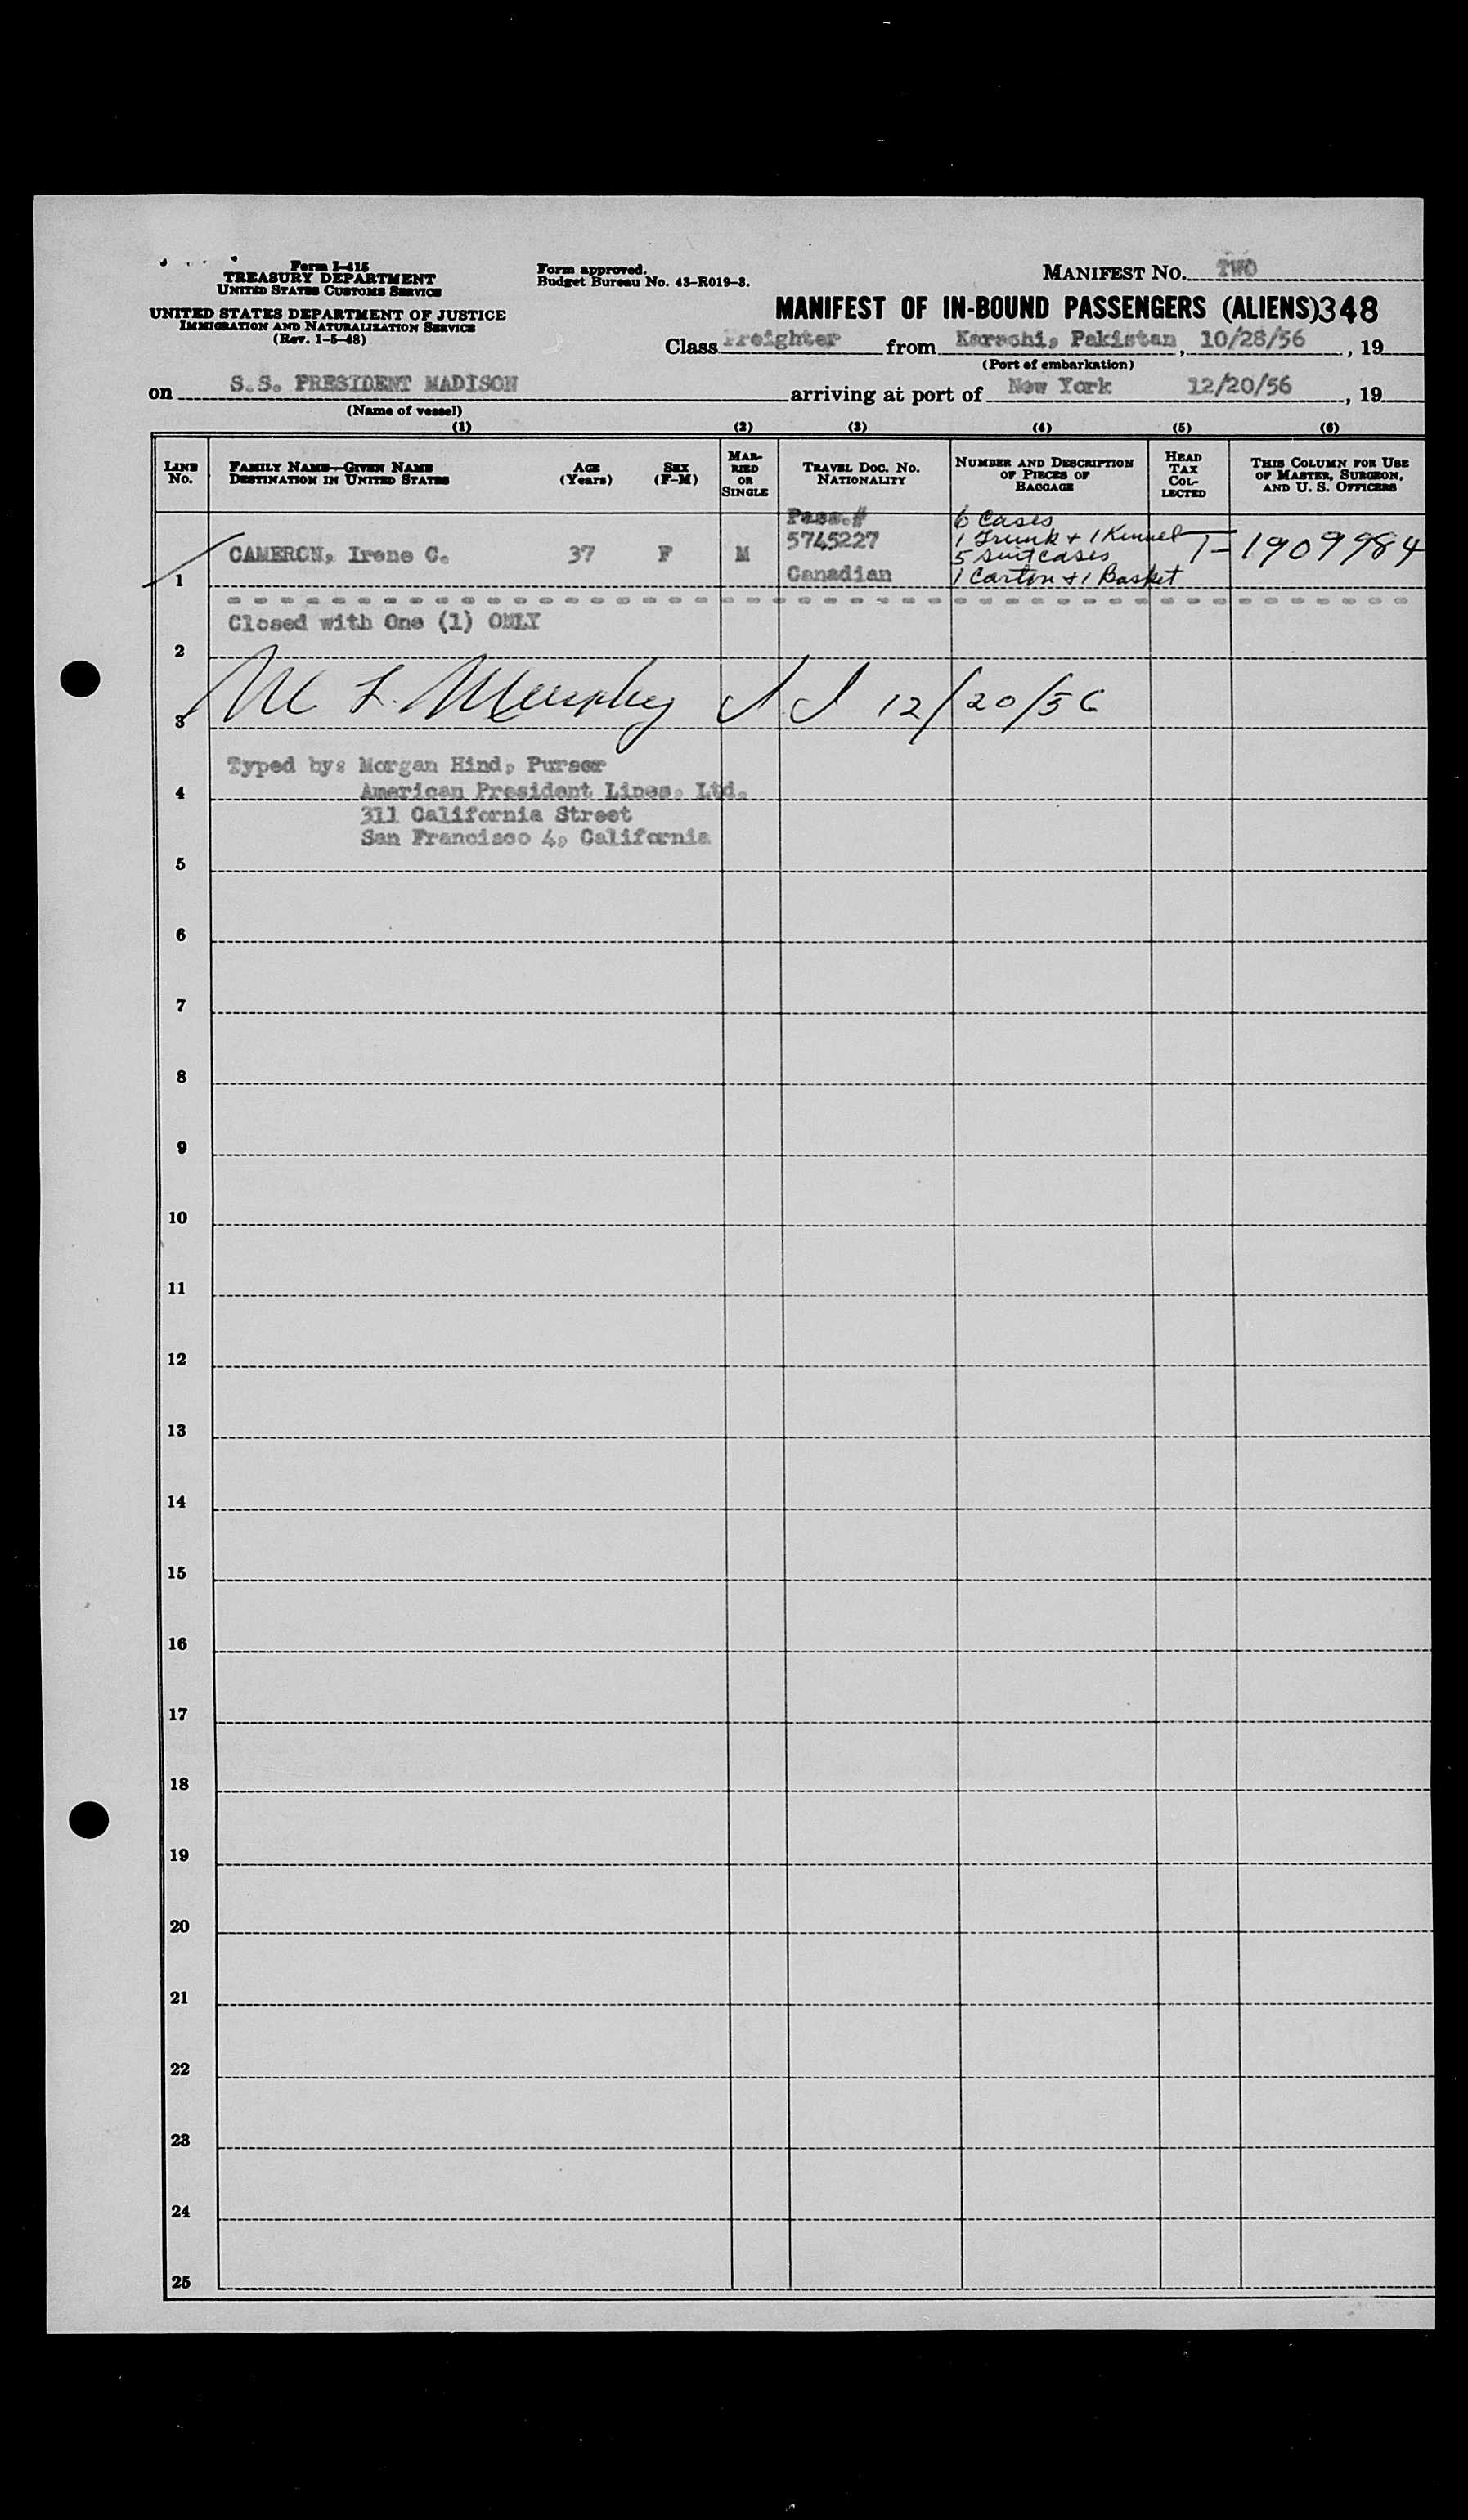 Form I-415
TREASURY DEPARTMENT
UNITED STATES CUSTOMS SERVICE
UNITED STATES DEPARTMENT OF JUSTICE
IMMIGRATION AND NATURALIZATION SERVICE
(Rev. 1-5-48)
Form approved.
Budget Bureau No. 43-R019-3.
MANIFEST NO. TWO
MANIFEST OF IN-BOUND PASSENGERS (ALIENS) 348
Class Freighter from Karachi, Pakistan, 10/28/56, 19
(Port of embarkation)
on S.S. PRESIDENT MADISON arriving at port of New York 12/20/56, 19
(Name of vessel)
(1) (2) (3) (4) (5) (6)
LINE No.
FAMILY NAME—GIVEN NAME
DESTINATION IN UNITED STATES
AGE (Years)
SEX (F-M)
MARRIED OR SINGLE
TRAVEL DOC. NO.
NATIONALITY
NUMBER AND DESCRIPTION OF PIECES OF BAGGAGE
HEAD TAX COLLECTED
THIS COLUMN FOR USE OF MASTER, SURGEON, AND U. S. OFFICERS
1 CAMERON, Irene C. 37 F M
Pass.#
5745227
Canadian
6 Cases
1 Trunk + 1 Kennel
5 Suitcases
1 Carton + 1 Basket
T-1909984
Closed with One (1) ONLY
2
3 M L. Murphy 12/20/56
Typed by: Morgan Hind, Purser
4 American President Lines, Ltd.
311 California Street
San Francisco 4, California
5
6
7
8
9
10
11
12
13
14
15
16
17
18
19
20
21
22
23
24
25